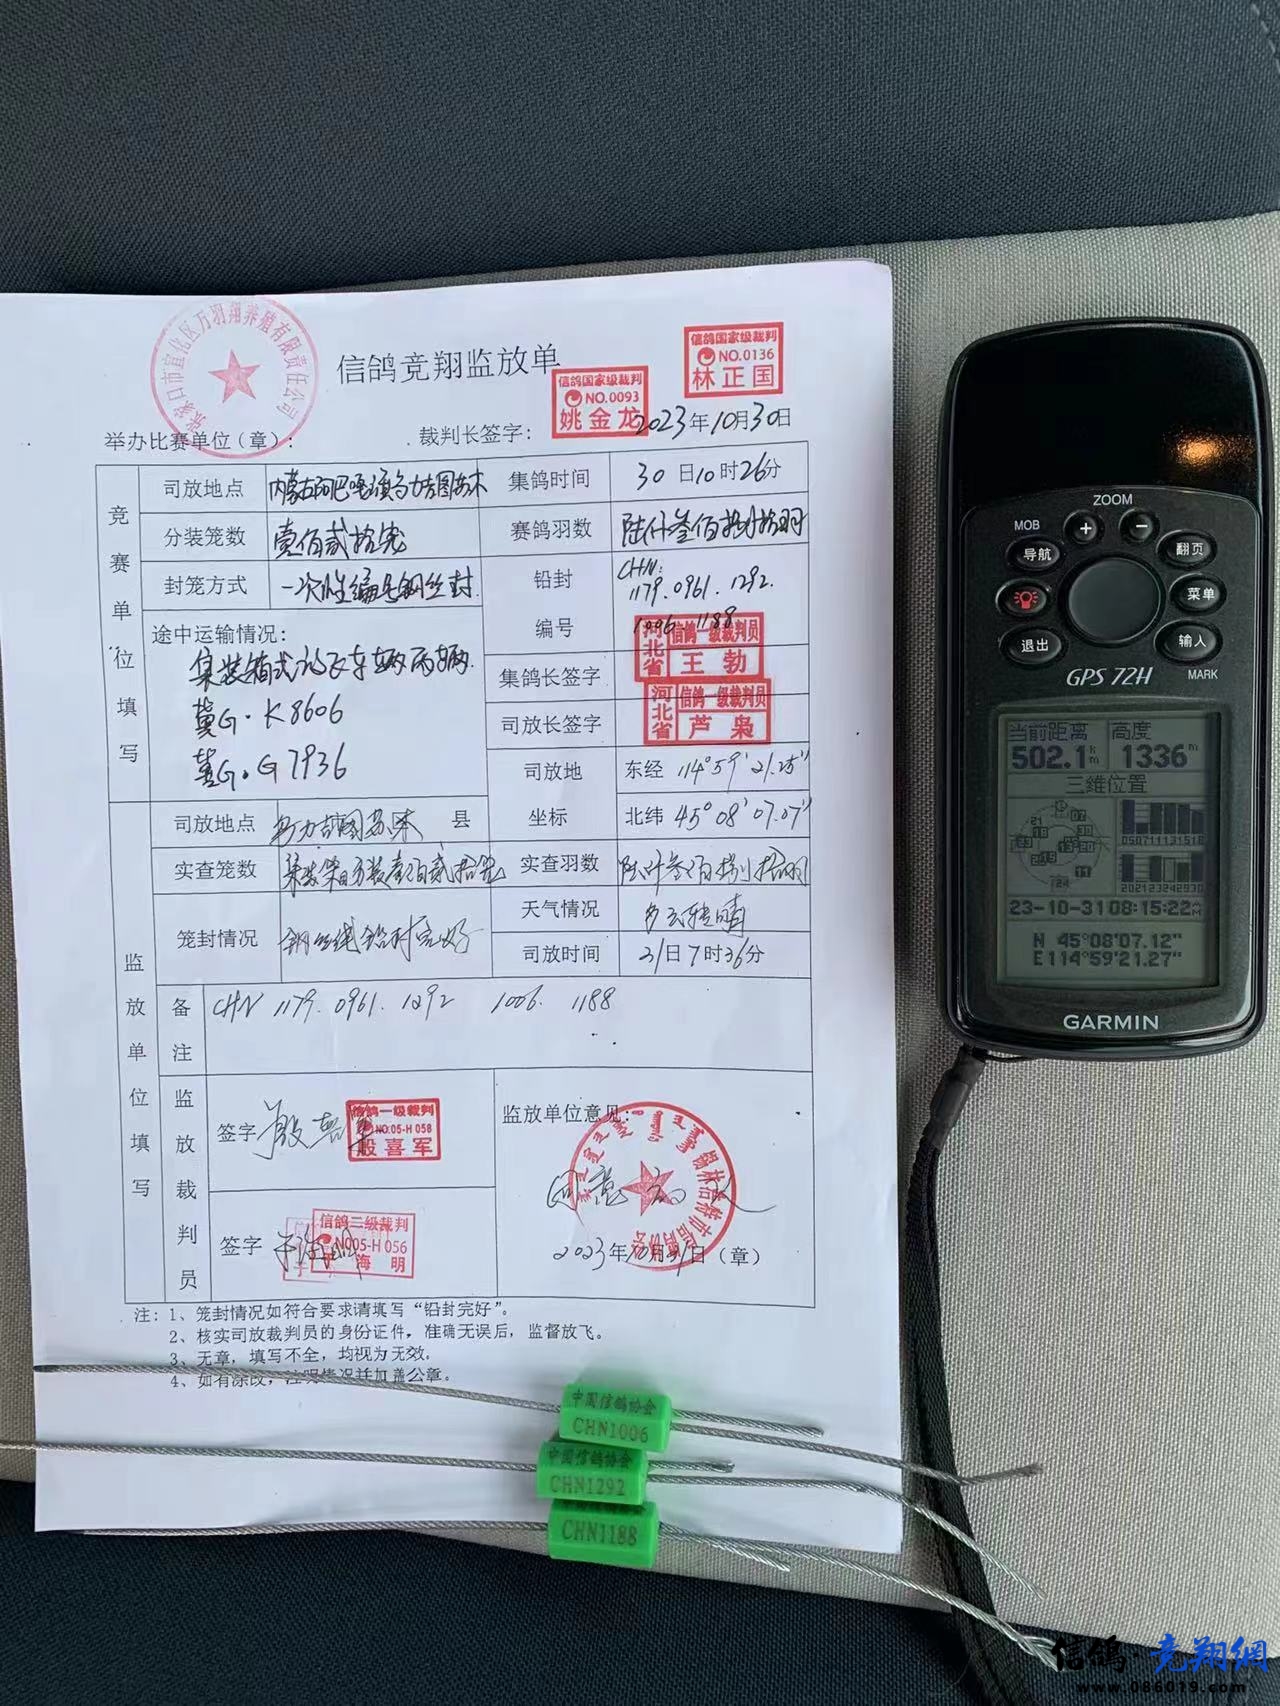 信鸽竞翔监放单
张家口市宣化区万羽翔养殖有限责任公司
信鸽国家级裁判
NO.0093
姚金龙
信鸽国家级裁判
NO.0136
林正国
举办比赛单位（章）：
裁判长签字：
2023年10月30日
竞赛单位填写
司放地点
集鸽时间
30日10时26分
分装笼数
壹佰贰拾笼
赛鸽羽数
封笼方式
一次性编号钢丝封.
铅封
编号
CHN:
1179.0961.1292.
1188
途中运输情况：
冀G·K8606
冀G·G7936
集鸽长签字
河北省
信鸽一级裁判员
王勃
司放长签字
河北省
信鸽一级裁判员
芦枭
司放地
坐标
东经 114°59′21.25″
北纬 45°08′07.07″
监放单位填写
司放地点
县
实查笼数
实查羽数
笼封情况
天气情况
多云转晴
司放时间
31日7时36分
备注
CHN 1179.0961.1292 1006. 1188
监放裁判员
签字
殷喜军
信鸽一级裁判
NO:05-H 058
殷喜军
签字
信鸽二级裁判
NO05-H 056
海明
监放单位意见：
同意
2023年10月31日（章）
注：1、笼封情况如符合要求请填写“铅封完好”。
2、核实司放裁判员的身份证件，准确无误后，监督放飞。
3、无章，填写不全，均视为无效。
4、如有涂改，注明情况并加盖公章。
中国信鸽协会
CHN1006
中国信鸽协会
CHN1292
CHN1188
ZOOM
MOB
+
−
导航
翻页
菜单
退出
输入
GPS 72H
MARK
当前距离
高度
502.1km
1336m
三维位置
23-10-31 08:15:22
N 45°08'07.12"
E114°59'21.27"
GARMIN
信鸽·竞翔網
www.086019.com